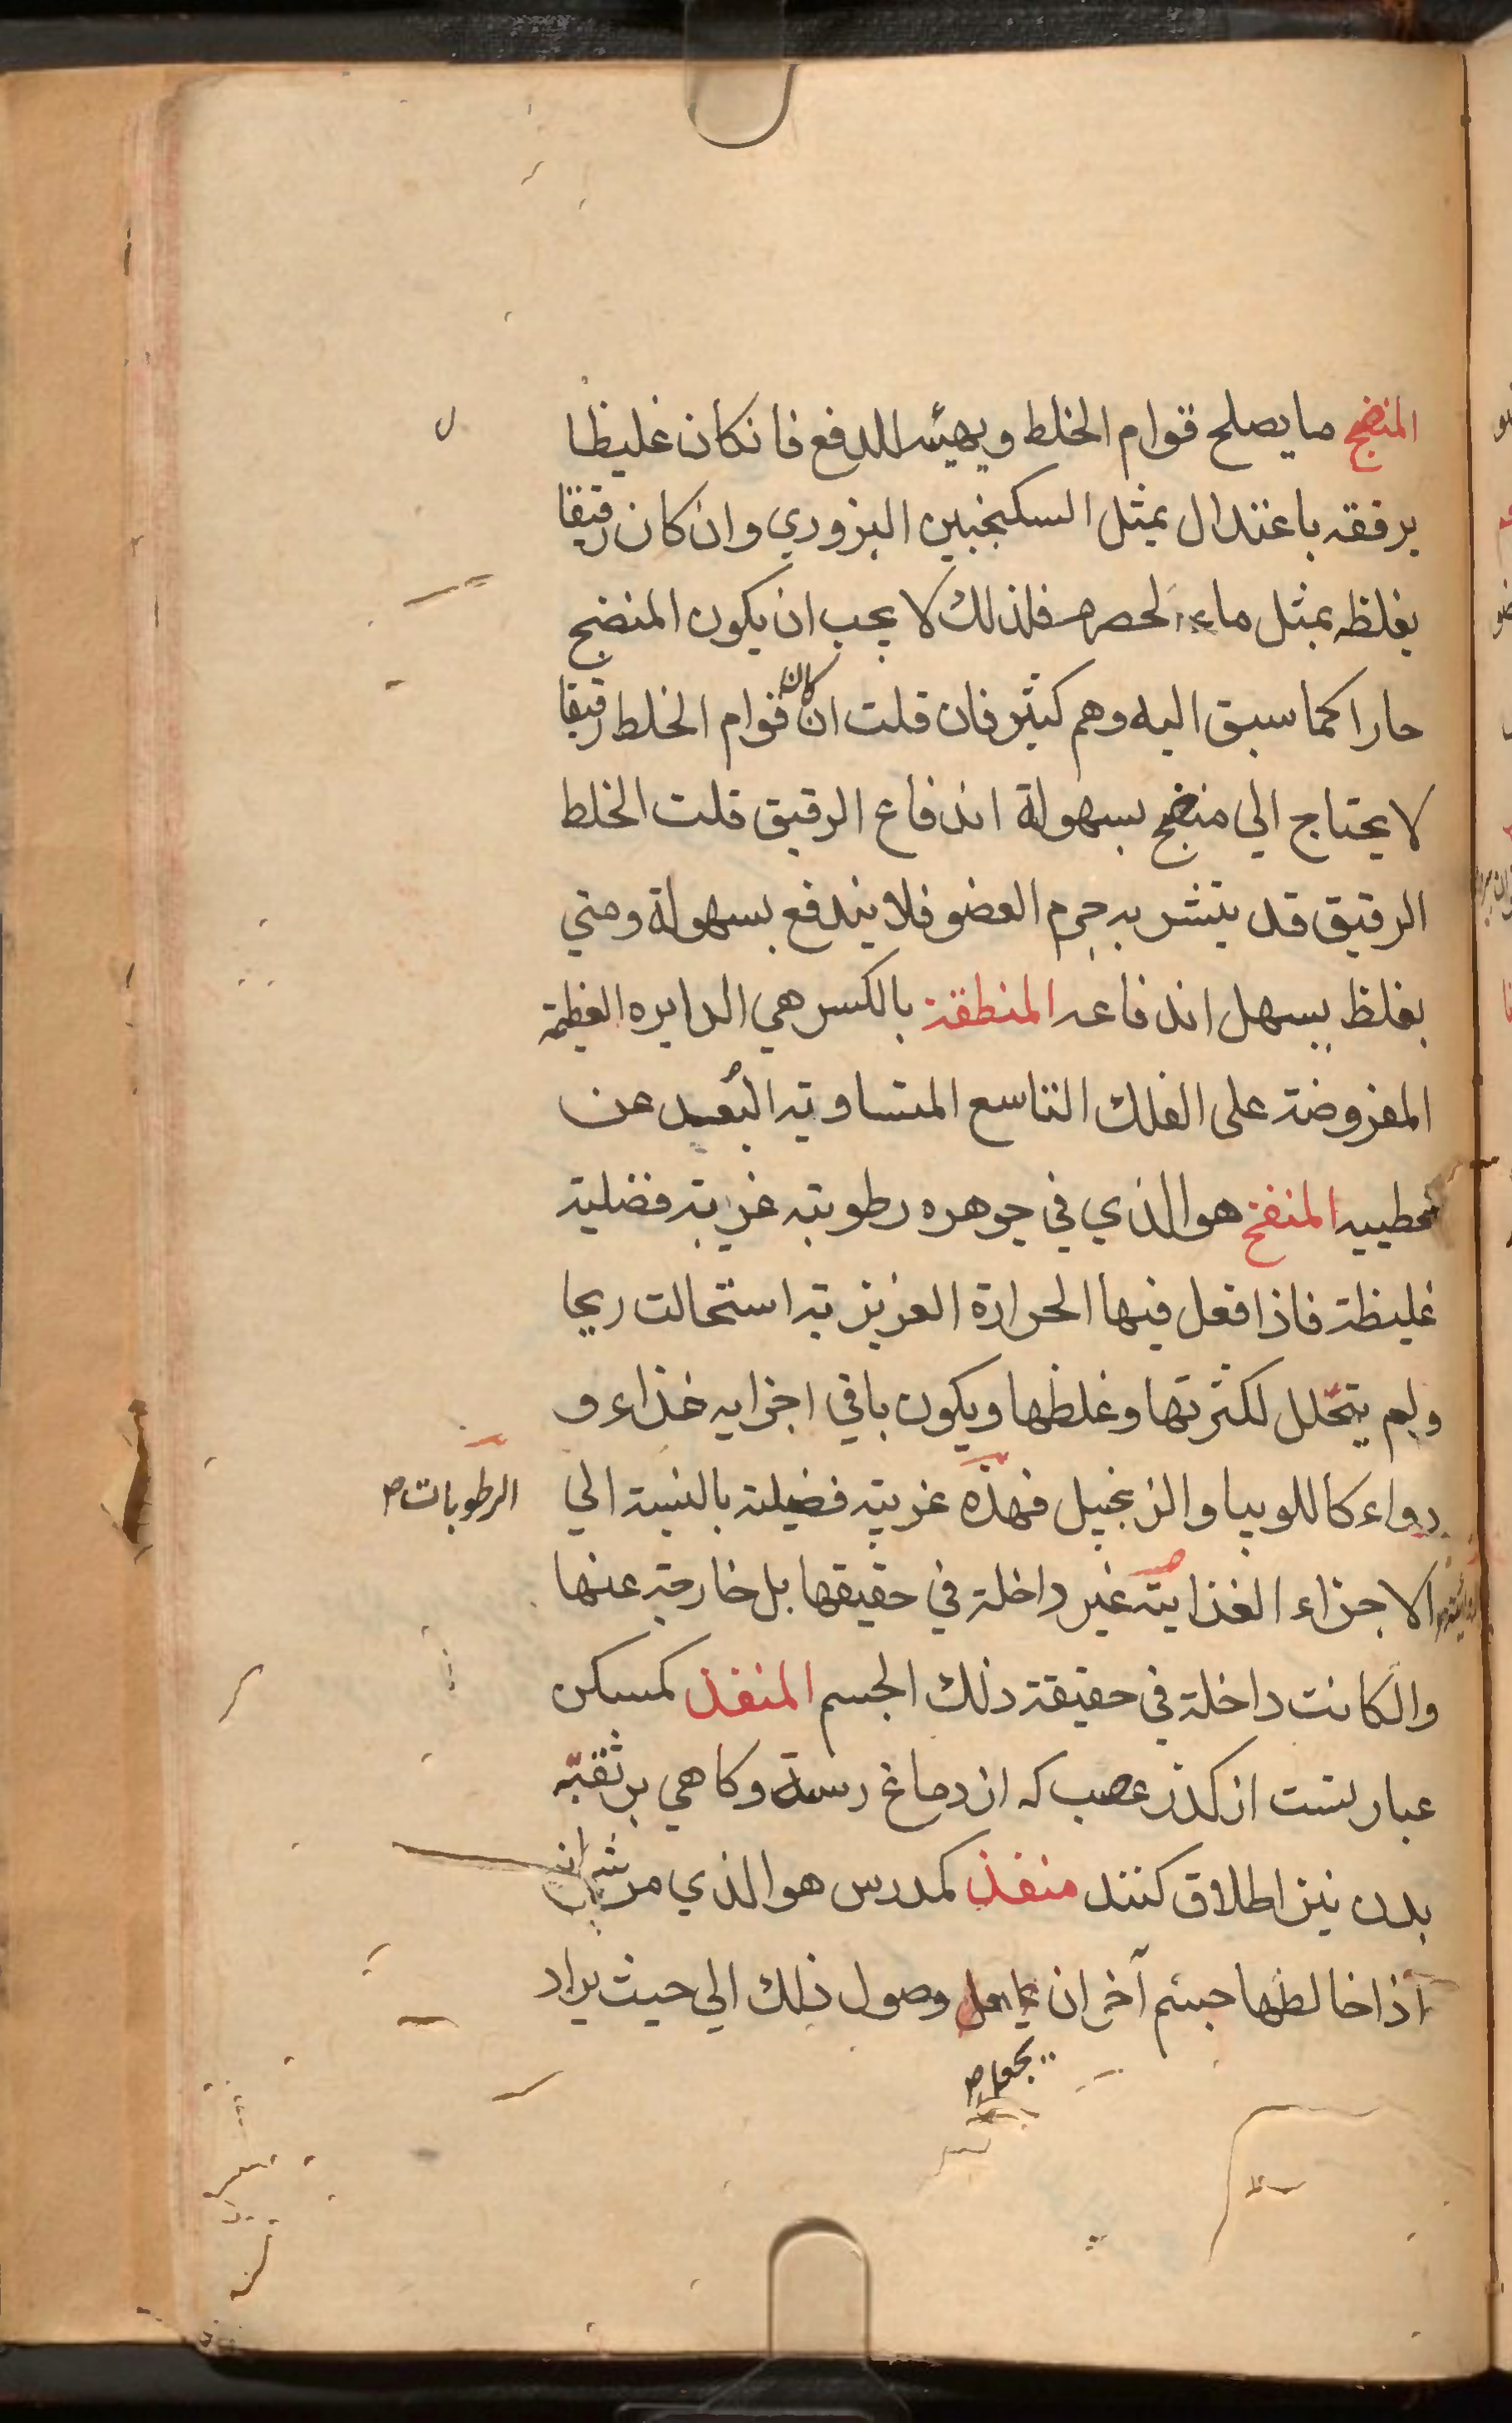 المنضج ما يصلح قوام الخلط ويهيئه للدفع فانكان غليظا
يرققه باعتدال بمثل السكنجبين البزوري وان كان رقيقا
يغلظه بمثل ماء الحصرم فلذلك لا يجب ان يكون المنضج
حارا كما سبق اليه وهم كثير فان قلت ان كان قوام الخلط رقيقا
لا يحتاج الي منضج بسهولة اندفاع الرقيق قلت الخلط
الرقيق قد يتشربه جرم العضو فلا يندفع بسهولة ومتي
يغلظ يسهل اندفاعه المنطقة بالكسر هي الدايره العظيمة
المفروضة علي الفلك التاسع المتساوية البُعد عن
قطبيه المنفخ هو الذي في جوهره رطوبته غريبة فضلية
غليظة فاذا فعل فيها الحرارة الغريزية استحالت ريحا
ولم يتحلل لكثرتها وغلظها ويكون باقي اجزايه غذاء و
دواء كاللوبيا والزنجبيل فهذه غريبة فضيلة بالنسبة الي
الرطوبات ص
الاجزاء الغذايية غير داخلة في حقيقها بل خارجة عنها
والكانت داخلة في حقيقة ذلك الجسم المنفذ كمسكن
عبارتست از كذر عصب كه از دماغ رسته وكاهي بر ثقبه
بدن نيز اطلاق كنند منفذ كمدرس هو الذي من شانه
اذا خالطها جسم آخر ان وصول ذلك الي حيث يراد
يجعل ص